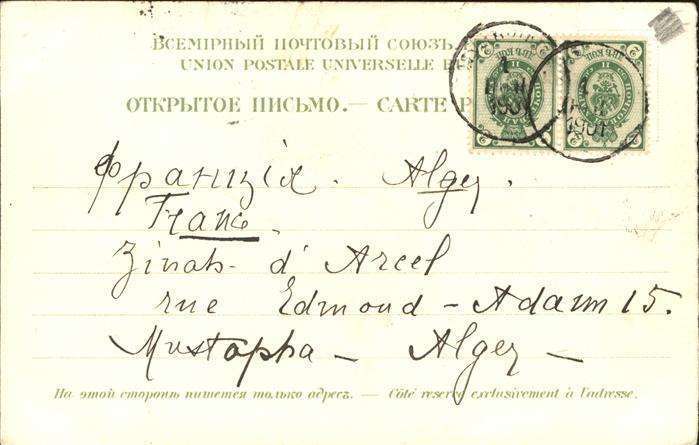 Всемірный почтовый союзъ.
UNION POSTALE UNIVERSELLE
ОТКРЫТОЕ ПИСЬМО. — CARTE P
Франція. Alger.
Franc.
d' Arcel
rue Edmond - Adam 15.
Mustapha - Alger -
На этой сторонѣ пишется только адресъ. — Côté réservé exclusivement à l'adresse.